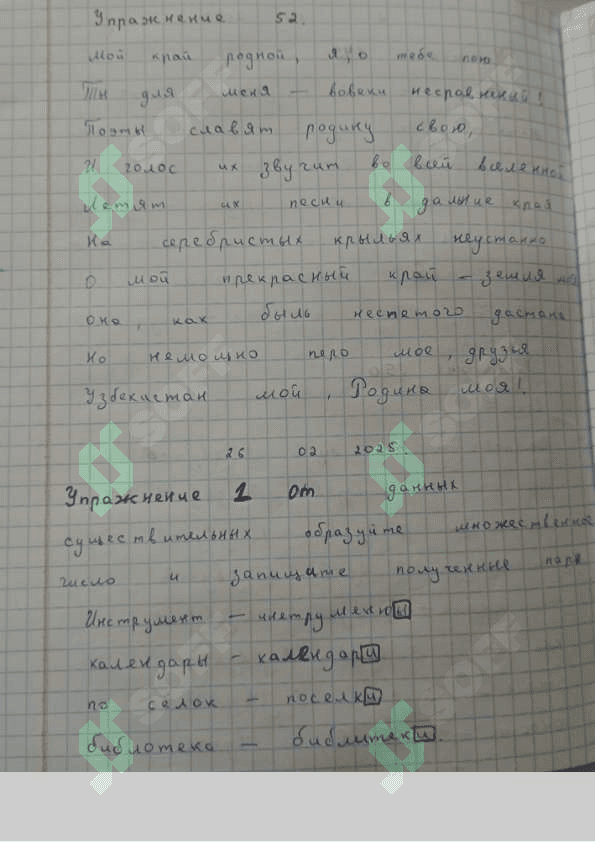 Упражнение 52.
Мой край родной, я, о тебе пою
Ты для меня – вовеки несравненный!
Поэты славят родину свою,
И голос их звучит во всей вселенной
Летят их песни в дальние края
на серебристых крыльях неустанно
О мой прекрасный край – земля моя
она, как быль неспетого дастана
но немощно перо мое, друзья
Узбекистан мой, Родина моя!
26 02 2025.
Упражнение 1 от данных
существительных образуйте множественное
число и запищите полученные пары
Инструмент – инструменты
календары – календари
по селок – поселки
библотека – библитеки.
SOFF